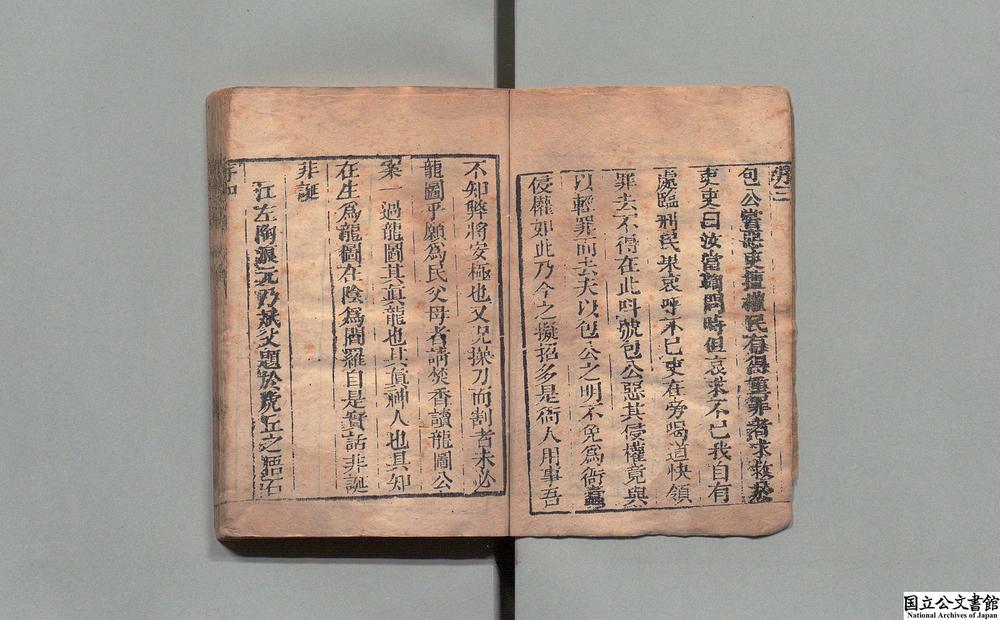 序三
包公當惡吏擅權民有得重罪者求救於
吏吏曰汝當鞫問時但哀求不已我自有
處臨刑民果哀呼不已吏在旁喝道快領
罪去不得在此呌號包公惡其侵權竟與
以輕罪而去夫以包公之明不免為衙蠹
侵權如此乃今之擬招多是衙人用事吾
不知弊將安極也又况操刀而割者未必
龍圖乎願為民父母者請焚香讀龍圖公
案一過龍圖其真龍也其真神人也具知
在生為龍圖在陰為閻羅自是實話非誕
非誕
江左陶烺元乃斌父題於虎丘之悟石
序四
国立公文書館
National Archives of Japan